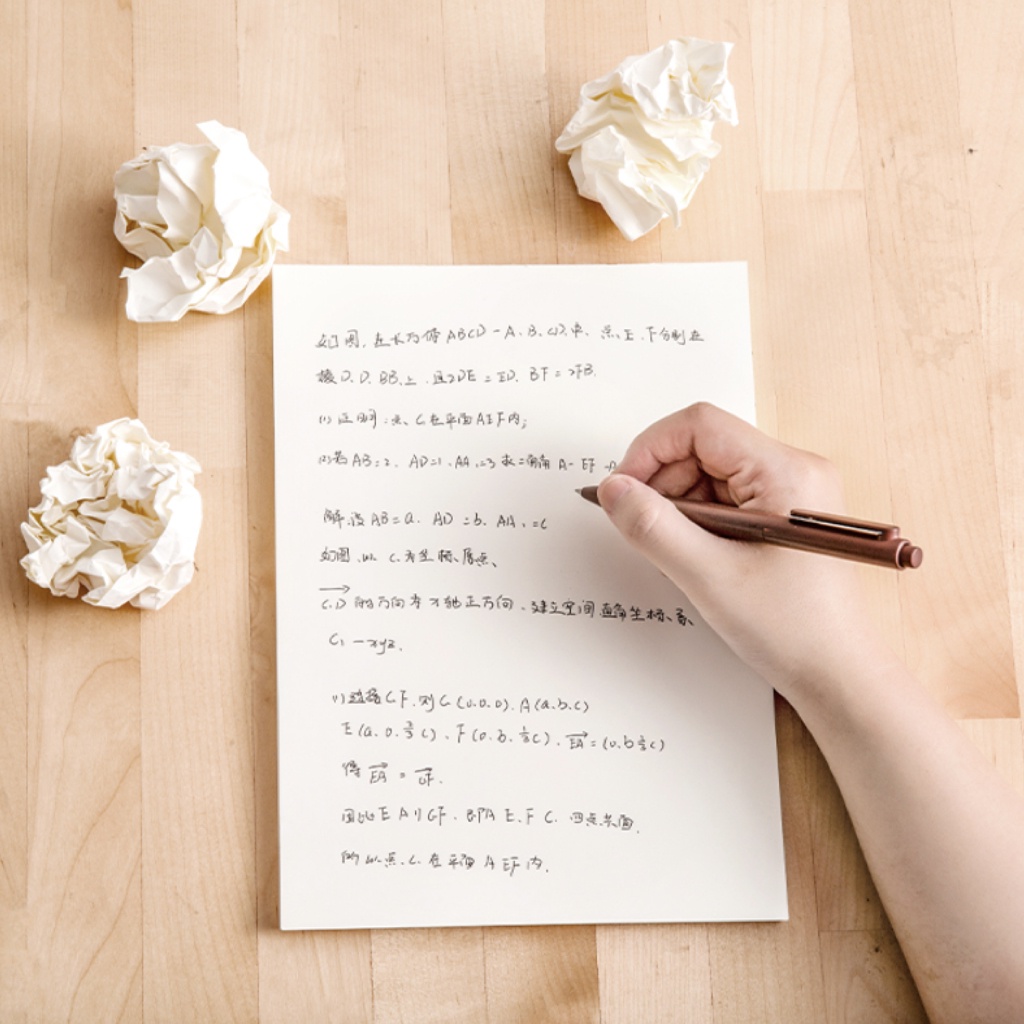 如图,在长方体ABCD-A₁B₁C₁D₁中,点E、F分别在
棱D₁D,BB₁上,且2DE=ED₁,BF=2FB₁
(1)证明:点C₁在平面AEF内;
(2)若AB=2,AD=1,AA₁=3求二面角A-EF-A
解:设AB=a,AD=b,AA₁=c
如图,以C₁为坐标原点、
C₁D₁的方向为x轴正方向,建立空间直角坐标系
C₁-xyz.
(1)连接C₁F,则C₁(0,0,0),A(a,b,c)
E(a,0,⅔c),F(0,b,⅓c),EA=(0,b,⅓c)
得EA=C₁F.
因此EA∥C₁F,即A、E、F、C₁四点共面,
所以点C₁在平面AEF内.